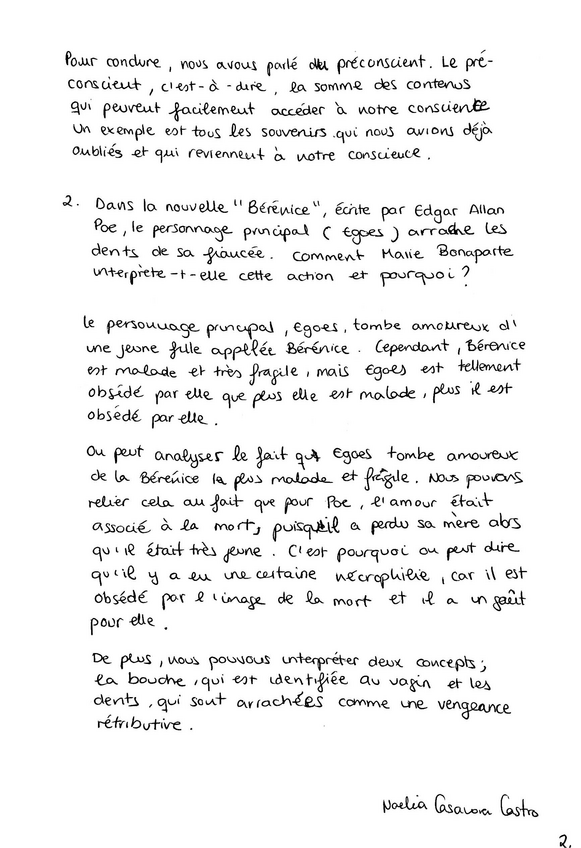 Pour conclure, nous avons parlé du préconscient. Le pré-
conscient, c'est-à-dire, la somme des contenus
qui peuvent facilement accéder à notre consciente
Un exemple est tous les souvenirs qui nous avions déjà
oubliés et qui reviennent à notre conscience.
2. Dans la nouvelle "Bérénice", écrite par Edgar Allan
Poe, le personnage principal (Egoes) arrache les
dents de sa fiancée. Comment Marie Bonaparte
interprète-t-elle cette action et pourquoi?
Le personnage principal, Egoes, tombe amoureux d'
une jeune fille appellée Bérénice. Cependant, Bérénice
est malade et très fragile, mais Egoes est tellement
obsédé par elle que plus elle est malade, plus il est
obsédé par elle.
On peut analyser le fait que Egoes tombe amoureux
de la Bérénice la plus malade et fragile. Nous pouvons
relier cela au fait que pour Poe, l'amour était
associé à la mort, puisqu'il a perdu sa mère alors
qu'il était très jeune. C'est pourquoi on peut dire
qu'il y a eu une certaine nécrophilie, car il est
obsédé par l'image de la mort et il a un goût
pour elle.
De plus, nous pouvons interpréter deux concepts;
la bouche, qui est identifiée au vagin et les
dents, qui sont arrachées comme une vengeance
rétributive.
Noelia Casanova Castro
2.